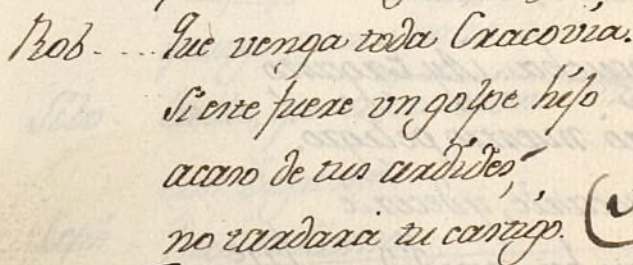 Rob.... Que venga toda Cracovia.
Si este fuere un golpe hijo
acaso de tus ardides,
no tardara tu castigo.